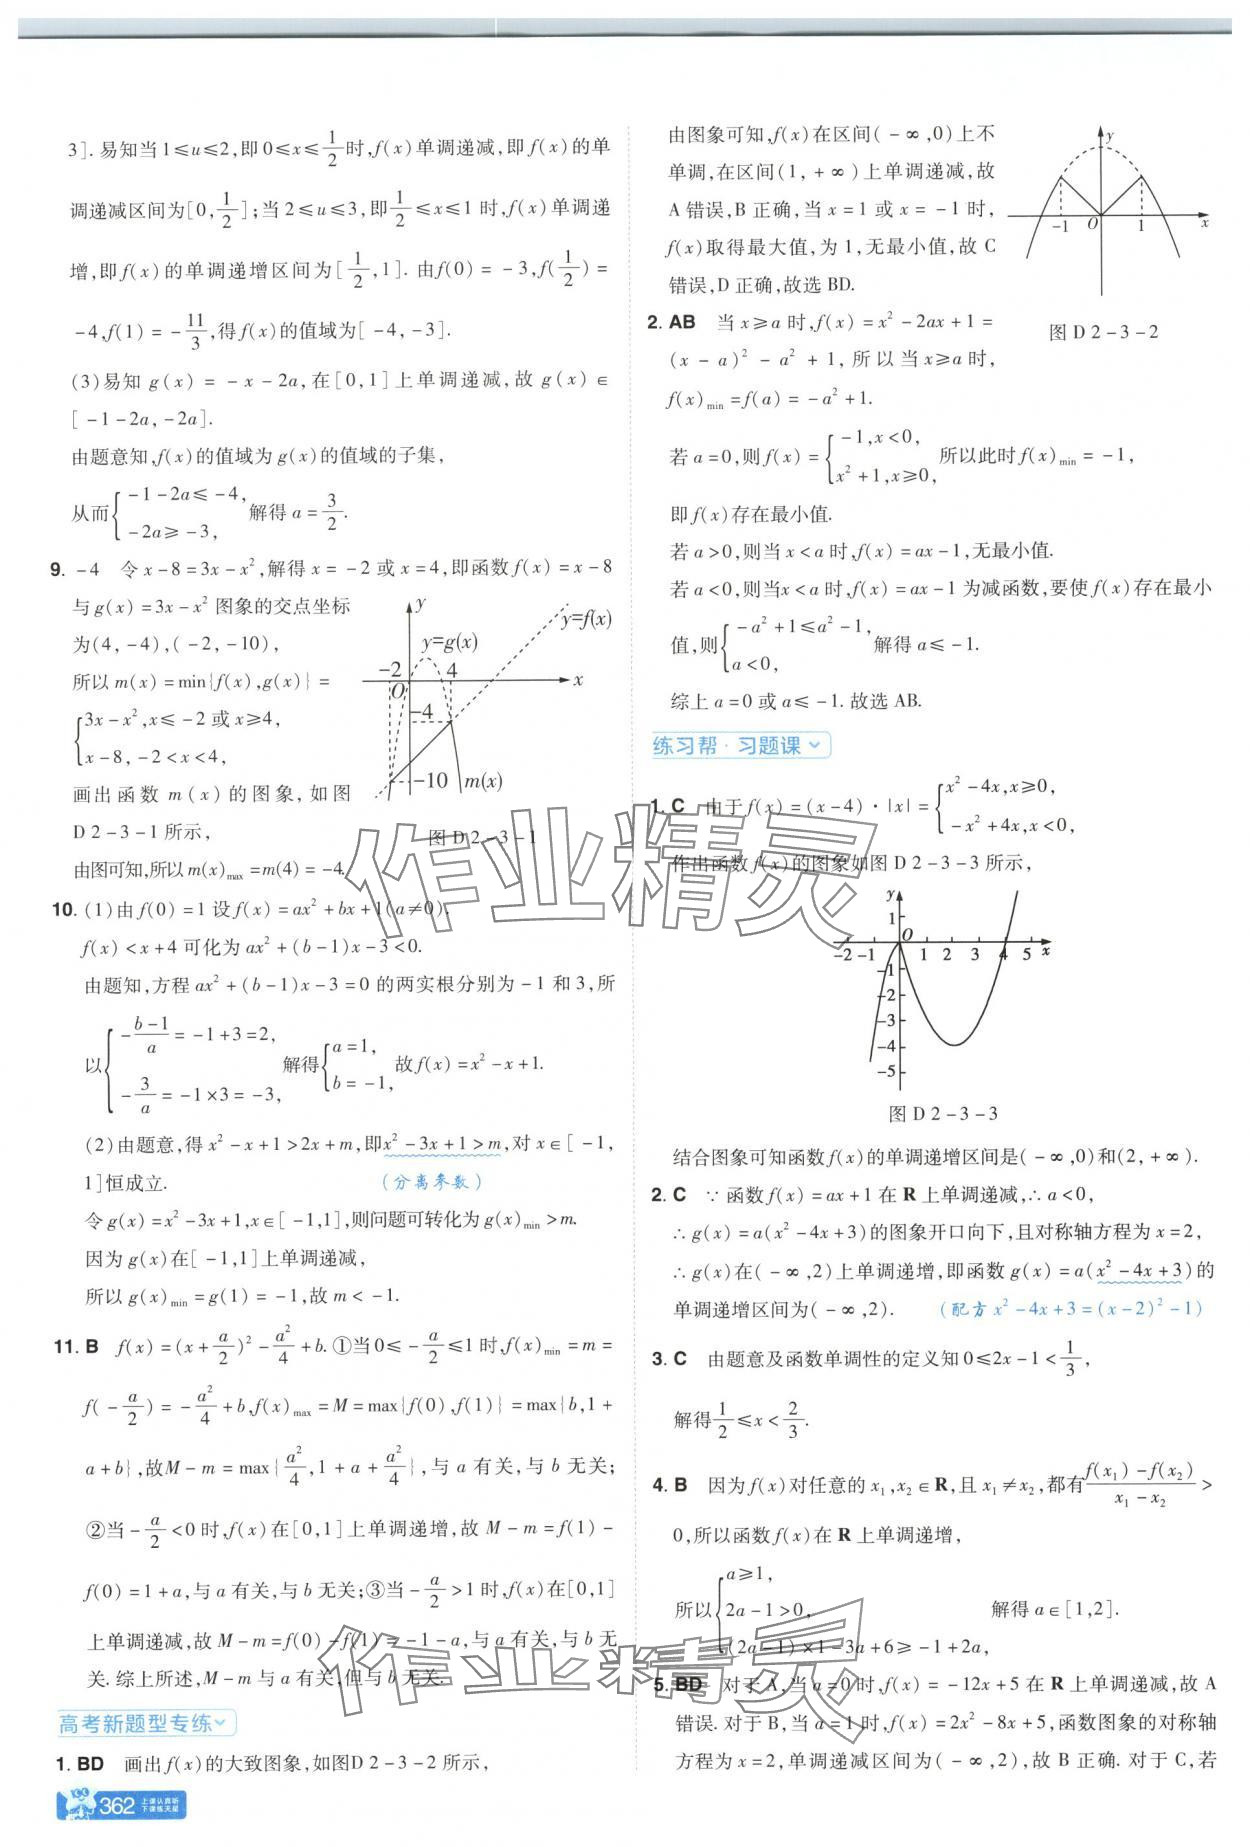 3]. 易知当 1≤u≤2,即 0≤x≤1/2时,f(x)单调递减,即 f(x)的单
调递减区间为[0,1/2];当 2≤u≤3,即1/2≤x≤1 时,f(x)单调递
增,即 f(x)的单调递增区间为[1/2,1]. 由f(0) = -3,f(1/2) =
-4,f(1) = -11/3,得 f(x)的值域为[-4,-3].
(3)易知 g(x) = -x-2a,在[0,1]上单调递减,故 g(x)∈
[-1-2a,-2a].
由题意知,f(x)的值域为 g(x)的值域的子集,
从而{-1-2a≤-4, -2a≥-3, 解得 a=3/2.
9. -4 令 x-8=3x-x²,解得 x=-2 或 x=4,即函数 f(x)=x-8
与 g(x)=3x-x² 图象的交点坐标
为(4,-4),(-2,-10),
所以 m(x)=min{f(x),g(x)}=
{3x-x²,x≤-2 或 x≥4,
x-8,-2<x<4,
画出函数 m(x)的图象,如图
D 2-3-1 所示,
由图可知,所以 m(x)max=m(4)=-4.
y
y=f(x)
y=g(x)
-2 4
O x
-4
-10 m(x)
图 D 2-3-1
10. (1)由 f(0)=1 设 f(x)=ax²+bx+1(a≠0).
f(x)<x+4 可化为 ax²+(b-1)x-3<0.
由题知,方程 ax²+(b-1)x-3=0 的两实根分别为 -1 和 3,所
以{-(b-1)/a=-1+3=2, -3/a=-1×3=-3, 解得{a=1, b=-1, 故 f(x)=x²-x+1.
(2)由题意,得 x²-x+1>2x+m,即x²-3x+1>m,对 x∈[-1,
1]恒成立. (分离参数)
令 g(x)=x²-3x+1,x∈[-1,1],则问题可转化为 g(x)min>m.
因为 g(x)在[-1,1]上单调递减,
所以 g(x)min=g(1)=-1,故 m<-1.
11. B f(x)=(x+a/2)²-a²/4+b. ①当 0≤-a/2≤1 时,f(x)min=m=
f(-a/2)=-a²/4+b,f(x)max=M=max{f(0),f(1)}=max{b,1+
a+b},故M-m=max{a²/4,1+a+a²/4},与 a 有关,与 b 无关;
②当-a/2<0 时,f(x)在[0,1]上单调递增,故 M-m=f(1)-
f(0)=1+a,与 a 有关,与 b 无关;③当-a/2>1 时,f(x)在[0,1]
上单调递减,故 M-m=f(0)-f(1)=-1-a,与 a 有关,与 b 无
关. 综上所述,M-m 与 a 有关,但与 b 无关.
高考新题型专练
1. BD 画出 f(x)的大致图象,如图D 2-3-2 所示,
362 上课认真听
下课练天星
由图象可知,f(x)在区间(-∞,0)上不
单调,在区间(1,+∞)上单调递减,故
A 错误,B 正确,当 x=1 或 x=-1 时,
f(x)取得最大值,为 1,无最小值,故 C
错误,D 正确,故选 BD.
y
-1 O 1 x
图 D 2-3-2
2. AB 当 x≥a 时,f(x)=x²-2ax+1=
(x-a)²-a²+1,所以当 x≥a 时,
f(x)min=f(a)=-a²+1.
若 a=0,则 f(x)={-1,x<0, x²+1,x≥0, 所以此时 f(x)min=-1,
即 f(x)存在最小值.
若 a>0,则当 x<a 时,f(x)=ax-1,无最小值.
若 a<0,则当x<a 时,f(x)=ax-1 为减函数,要使 f(x)存在最小
值,则{-a²+1≤a²-1, a<0, 解得 a≤-1.
综上 a=0 或 a≤-1. 故选 AB.
练习帮·习题课
1. C 由于 f(x)=(x-4)·|x|={x²-4x,x≥0, -x²+4x,x<0,
作出函数 f(x)的图象如图 D 2-3-3 所示,
y
1
O
-2 -1 1 2 3 4 5 x
-1
-2
-3
-4
-5
图 D 2-3-3
结合图象可知函数 f(x)的单调递增区间是(-∞,0)和(2,+∞).
2. C ∵函数 f(x)=ax+1 在 R 上单调递减,∴a<0,
∴g(x)=a(x²-4x+3)的图象开口向下,且对称轴方程为 x=2,
∴g(x)在(-∞,2)上单调递增,即函数 g(x)=a(x²-4x+3)的
单调递增区间为(-∞,2). (配方 x²-4x+3=(x-2)²-1)
3. C 由题意及函数单调性的定义知 0≤2x-1<1/3,
解得1/2≤x<2/3.
4. B 因为 f(x)对任意的 x₁,x₂∈R,且 x₁≠x₂,都有(f(x₁)-f(x₂))/(x₁-x₂)>
0,所以函数 f(x)在 R 上单调递增,
所以{a≥1, 2a-1>0, (2a-1)×1-3a+6≥-1+2a, 解得 a∈[1,2].
5. BD 对于 A,当 a=0 时,f(x)=-12x+5 在 R 上单调递减,故 A
错误. 对于 B,当 a=1 时,f(x)=2x²-8x+5,函数图象的对称轴
方程为 x=2,单调递减区间为(-∞,2),故 B 正确. 对于 C,若
作业精灵
作业精灵